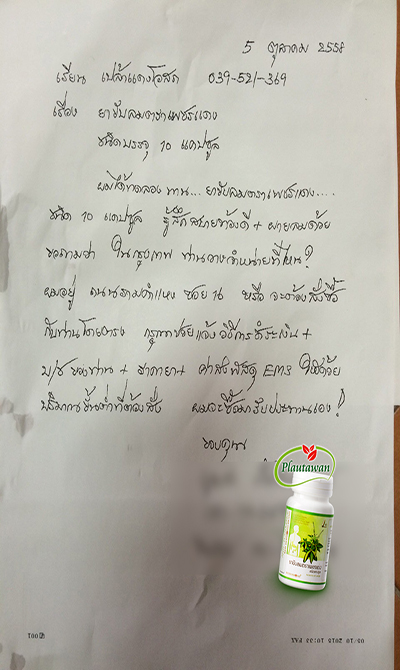 5 ตุลาคม 2558
เรียน เปล้าแดงโอสถ 039-521-369
เรื่อง ยาขับลมตราเพชรแดง
ชนิดบรรจุ 10 แคปซูล
ผมได้ทดลองทาน... ยาขับลมตราเพชรแดง....
ชนิด 10 แคปซูล รู้สึกสบายท้องดี + ผายลมด้วย
ขอถามว่า ในกรุงเทพ ท่านวางจำหน่ายที่ไหน?
ผมอยู่ ถนนรามคำแหง ซอย หรือ จะต้องสั่งซื้อ
กับท่านโดยตรง กรุณาช่วยแจ้งวิธีการชำระเงิน +
บ/ช ของท่าน + ราคายา + ค่าส่งพัสดุ EMS ให้ด้วย
ปริมาณขั้นต่ำที่ต้องสั่ง ผมจะซื้อมารับประทานเอง!
ขอบคุณ
Plautawan
001
05/10 2015 10:33 FAX